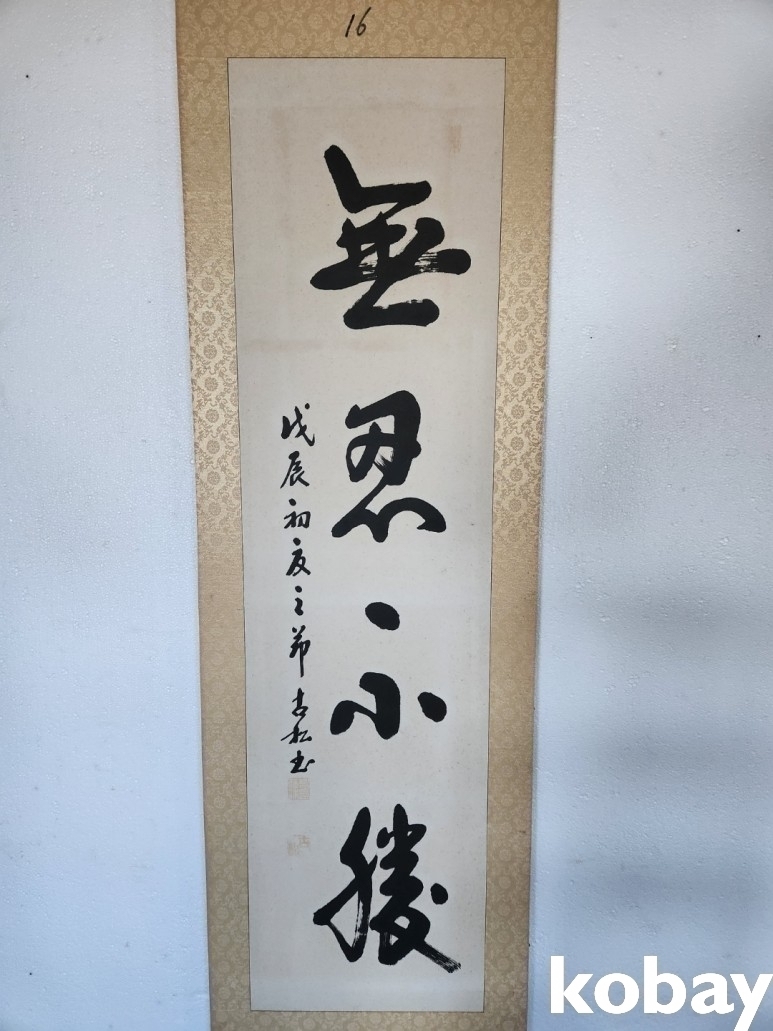 16
無忍不勝
戊辰初夏之節 古松書
kobay